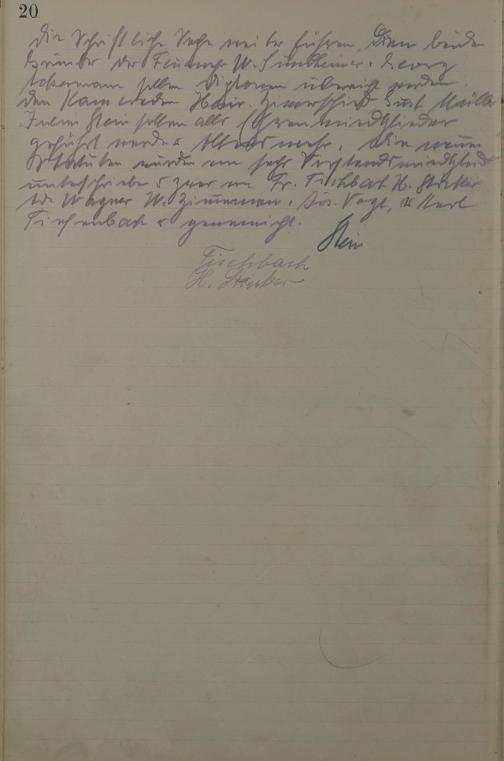 20
die Schriftliche Sache weiter führen. Dem beiden
Gründer der Feuerwehr W. & Georg
Ackermann sollen Diplomen überreicht werden
den Kameraden Heinr. Gust Müller
Julius Stein sollen alls Ehrenmitglieder
geführt werden. Die neuen
Statuten wurden von sechs Vorstandsmitglieder
unterschrieben u zwar von Fr. Fischbach H. Stecker
Wagner W. Zimmermann, Jos. Vogt, u Karl
Fischenbach u genemicht.
Stein
Fischbach
H. Stecker